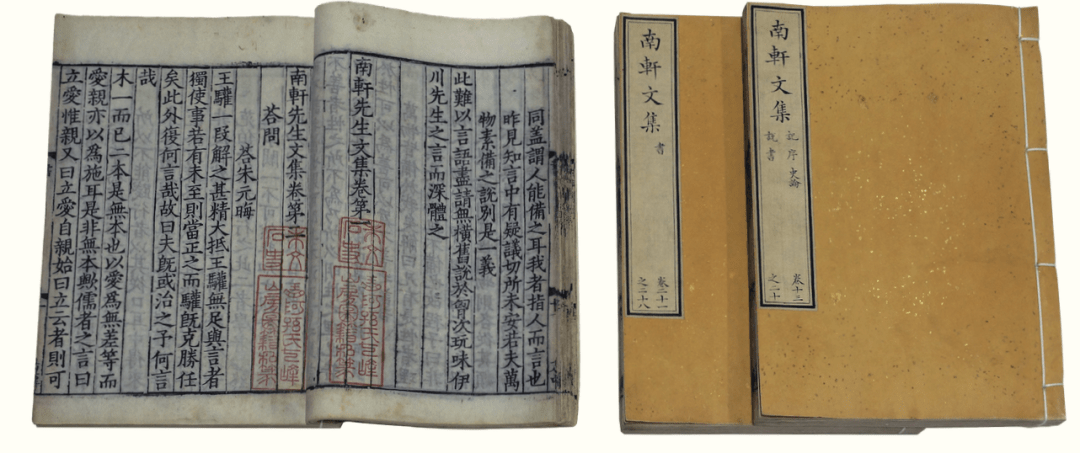 同蓋謂人能備之耳我者指人而言也
昨見知言中有疑議切所未安若夫萬
物素備之說別是一義
此難以言語盡請無橫舊說於胷次玩味伊
川先生之言而深體之
南軒先生文集卷第
南軒先生文集卷第
答問
答朱元晦
王驩一段解之甚精大抵王驩無足與言者
獨使事若有未至則當正之而驩旣克勝任
矣此外復何言哉故曰夫旣或治之予何言
哉
木一而已二本是無本也以愛爲無差等而
愛親亦以爲施耳是非無本歟儒者之言曰
立愛惟親又曰立愛自親始曰立云者則可
南軒文集
記序史論
說書
卷十三
之二十
南軒文集
書
卷二十一
之二十八